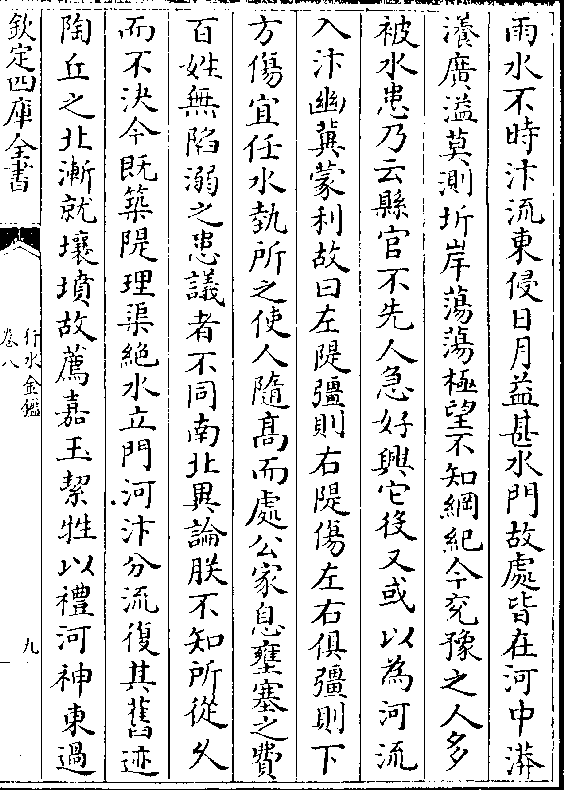 雨水不時汴流東侵日月益甚水門故處皆在河中漭
瀁廣溢莫測圻岸蕩蕩極望不知綱紀今兖豫之人多
被水患乃云縣官不先人急好興它役又或以為河流
入汴幽冀蒙利故曰左隄彊則右隄傷左右俱彊則下
方傷宜任水埶所之使人隨髙而處公家息壅塞之費
百姓無陷溺之患議者不同南北異論朕不知所從久
而不決今既築隄理渠絶水立門河汴分流復其舊迹
陶丘之北漸就壤墳故薦嘉玉絜牲以禮河神東過
欽定四庫全書
行水金鑑
卷八
九